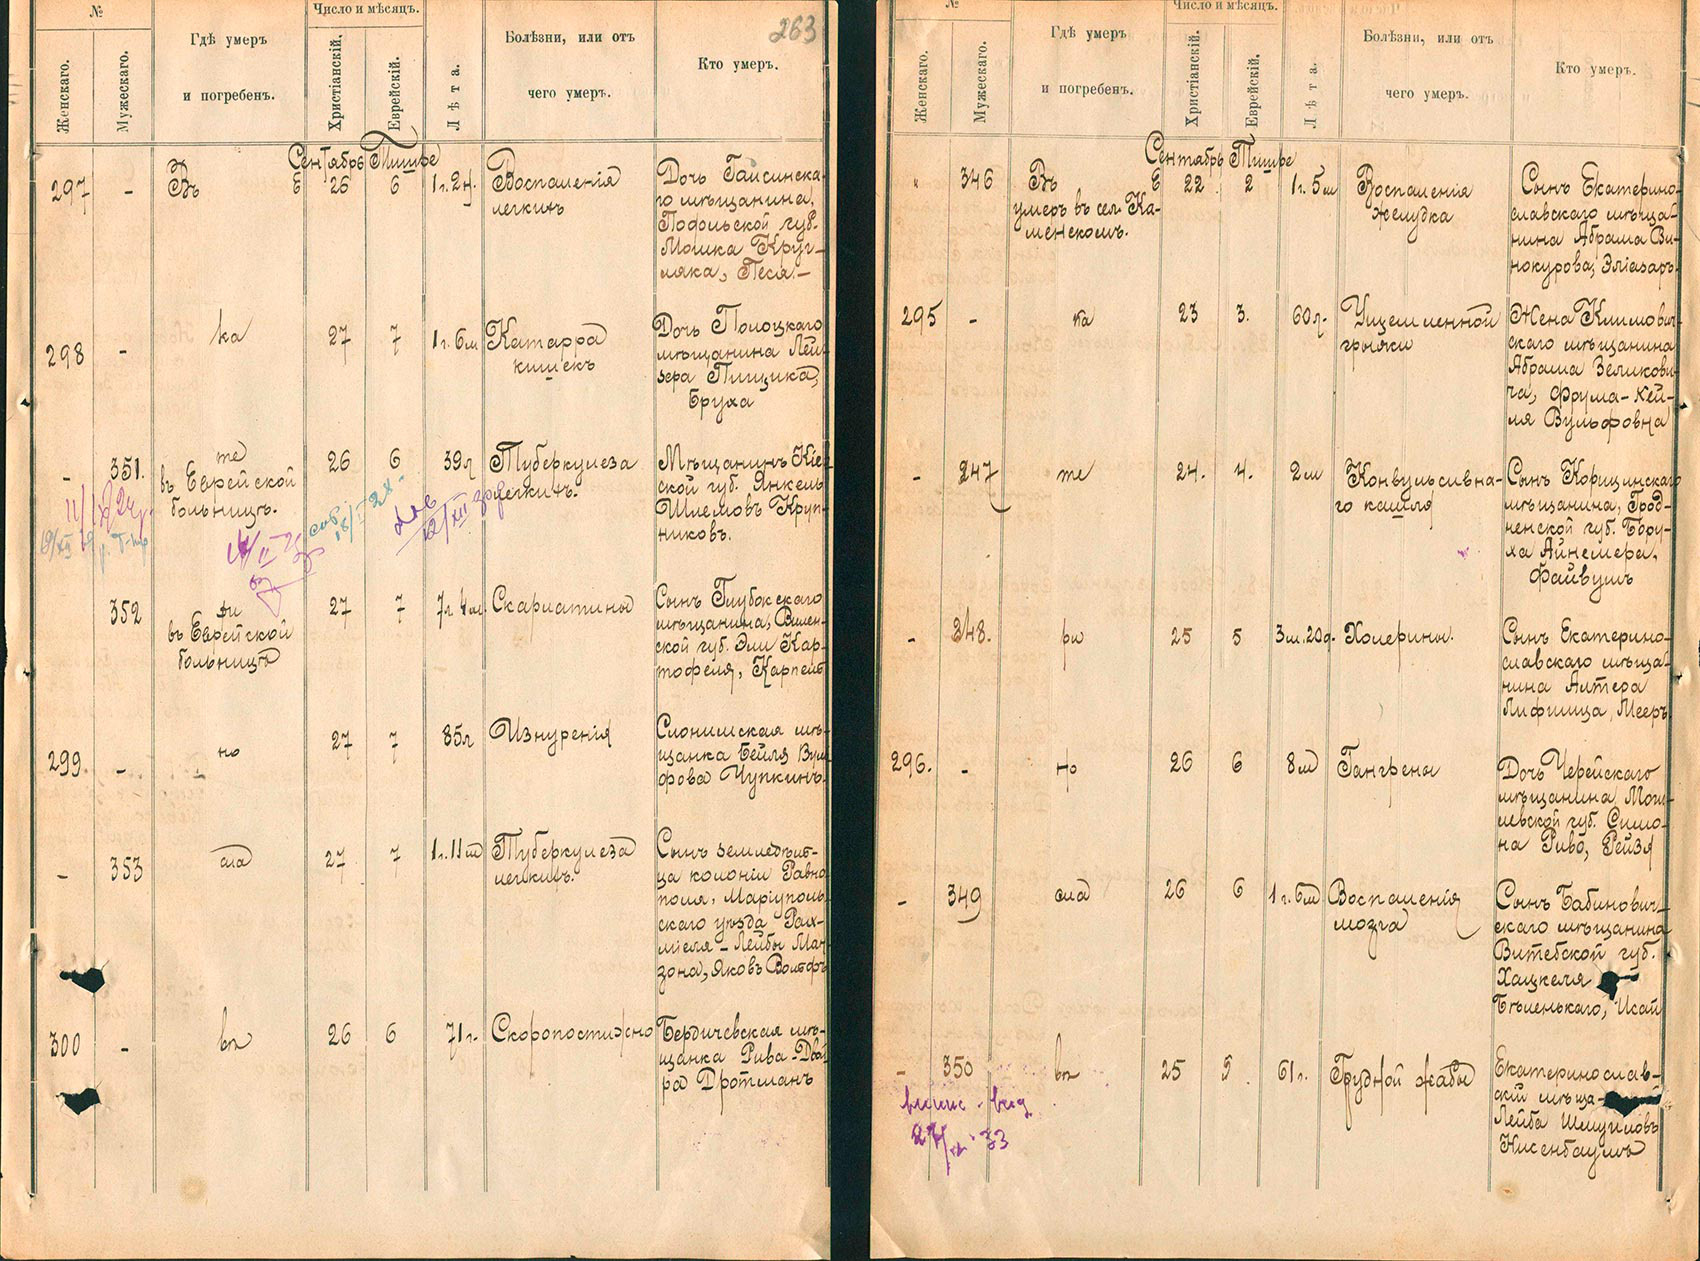 263
№
Число и мѣсяцъ.
Женскаго.
Мужескаго.
Гдѣ умеръ
и погребенъ.
Христіанскій.
Еврейскій.
Лѣта.
Болѣзни, или отъ
чего умеръ.
Кто умеръ.
Сентябрь Тишре
297 - Въ Е 26 6 1 г. 2 н.
Воспаленія
легкихъ
Дочь Гайсинска-
го мѣщанина,
Подольской губ.
Мошка Круг-
ляка, Песя.-
298 - ка 27 7 1 г. 6 м
Катарра
кишекъ
Дочь Полоцкаго
мѣщанина Лей-
зера Пищика,
Бруха
- 351. те 26 6 39 л
въ Еврейской
больницѣ.
Туберкулеза
легкихъ.
Мѣщанинъ Кіев-
ской губ. Янкель
Шлемовъ Круп-
никовъ.
352 ри 27 7 7 л 4 м.
въ Еврейской
больницѣ
Скарлатины
Сынъ Глубокскаго
мѣщанина, Вилен-
ской губ. Эли Кар-
тофеля, Карпель
299 - но 27 7 85 л
Изнуренія
Слонимская мѣ-
щанка Бейля Вуль
фова Чупкинъ.
- 353 сла 27 7 1 г. 11 м
Туберкулеза
легкихъ.
Сынъ земледѣль-
ца колоніи Равно
поля, Маріуполь
скаго уѣзда Рах-
міеля - Лейбы Ман-
зона, Яковъ Вольфъ
300 - вл 26 6 71 г.
Скоропостижно
Бердичевская мѣ-
щанка Рива - Двой
ра Дротманъ
№
Число и мѣсяцъ.
Женскаго.
Мужескаго.
Гдѣ умеръ
и погребенъ.
Христіанскій.
Еврейскій.
Лѣта.
Болѣзни, или отъ
чего умеръ.
Кто умеръ.
Сентябрь Тишре
346 Въ Е 22 2 1 г. 5 м
умеръ въ сел. Ка-
менскомъ.
Воспаленія
желудка
Сынъ Екатерино-
славскаго мѣща-
нина Абрама Ви-
нокурова, Эліазаръ
295 - ка 23 3. 60 л.
Ущемленной
грыжи
Жена Климович
скаго мѣщанина
Абрама Зеликови-
ча, Фрума - Кей-
ля Вульфовна
- 247 те 24. 4. 2 м
Конвульсивна-
го кашля
Сынъ Корицинскаго
мѣщанина, Грод-
ненской губ. Бору-
ха Айнемера,
Файвушъ
- 248. ри 25 5 3 м. 20 д.
Холерины.
Сынъ Екатерино-
славскаго мѣща-
нина Алтера
Лифшица, Мееръ
296. - но 26 6 8 м
Гангрены
Дочь Черейскаго
мѣщанина Моги-
левской губ. Симо-
на Риво, Рейзя
- 349 сла 26 6 1 г. 6 м
Воспаленія
мозга
Сынъ Бабинович-
скаго мѣщанина
Витебской губ.
Хацкеля
Бѣленькаго, Исай
- 350 вл 25 5 61 г.
Грудной жабы
Екатеринослав-
скій мѣща-
Лейба Шмуиловъ
Нисенбаумъ